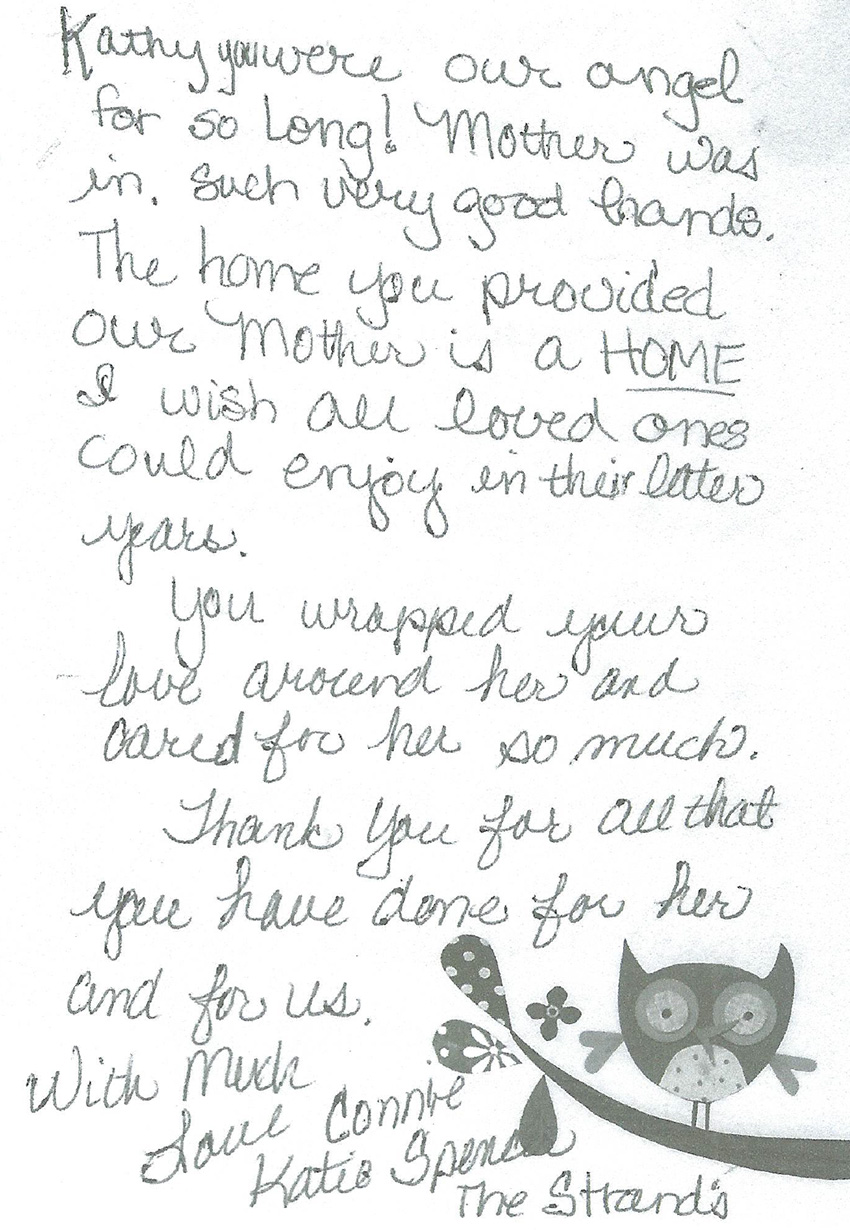 Kathy you were our angel
for so long! Mother was
in. such very good hands.
The home you provided
our Mother is a HOME
I wish all loved ones
could enjoy in their later
years.
You wrapped your
love around her and
cared for her so much.
Thank You for all that
you have done for her
and for us.
With Much
Love Connie
Katie Spencer
The Strands